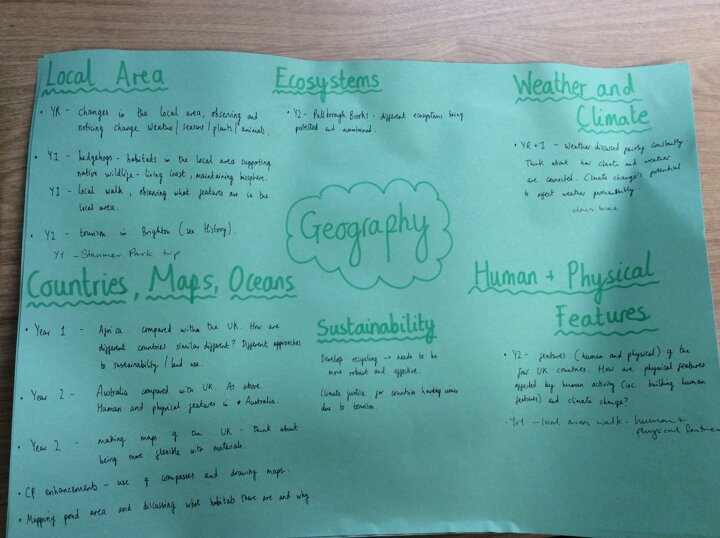 Local Area
• YR - changes in the local area, observing and
noticing change. Weather / seasons / plants / animals.
• Y1 - hedgehogs - habitats in the local area supporting
native wildlife - living coast, maintaining biosphere.
Y1 - local walk, observing what features are in the
local area.
• Y2 - tourism in Brighton (see History).
Y1 - Stanmer Park trip
Ecosystems
• Y2 - Pullborough Brooks - different ecosystems being
protected and maintained.
Weather and
Climate
• YR + 1 - Weather discussed fairly constantly.
Think about how climate and weather
are connected. Climate change's potential
to affect weather permanently.
Geography
Countries, Maps, Oceans
• Year 1 - Africa compared with the UK. How are
different countries similar/different? Different approaches
to sustainability / land use.
• Year 2 - Australia compared with UK. As above.
Human and physical features in Australia.
• Year 2 - making maps of the UK - think about
being more flexible with materials.
• CP enhancements - use of compasses and drawing maps.
• Mapping pond area and discussing what habitats there are and why.
Sustainability
Develop recycling → needs to be
more robust and effective.
Climate justice for countries having issues
due to tourism.
Human + Physical
Features
• Y2 - features (human and physical) of the
four UK countries. How are physical features
affected by human activity (inc. building human
features) and climate change?
• Yr1 - local area walk - human +
physical features